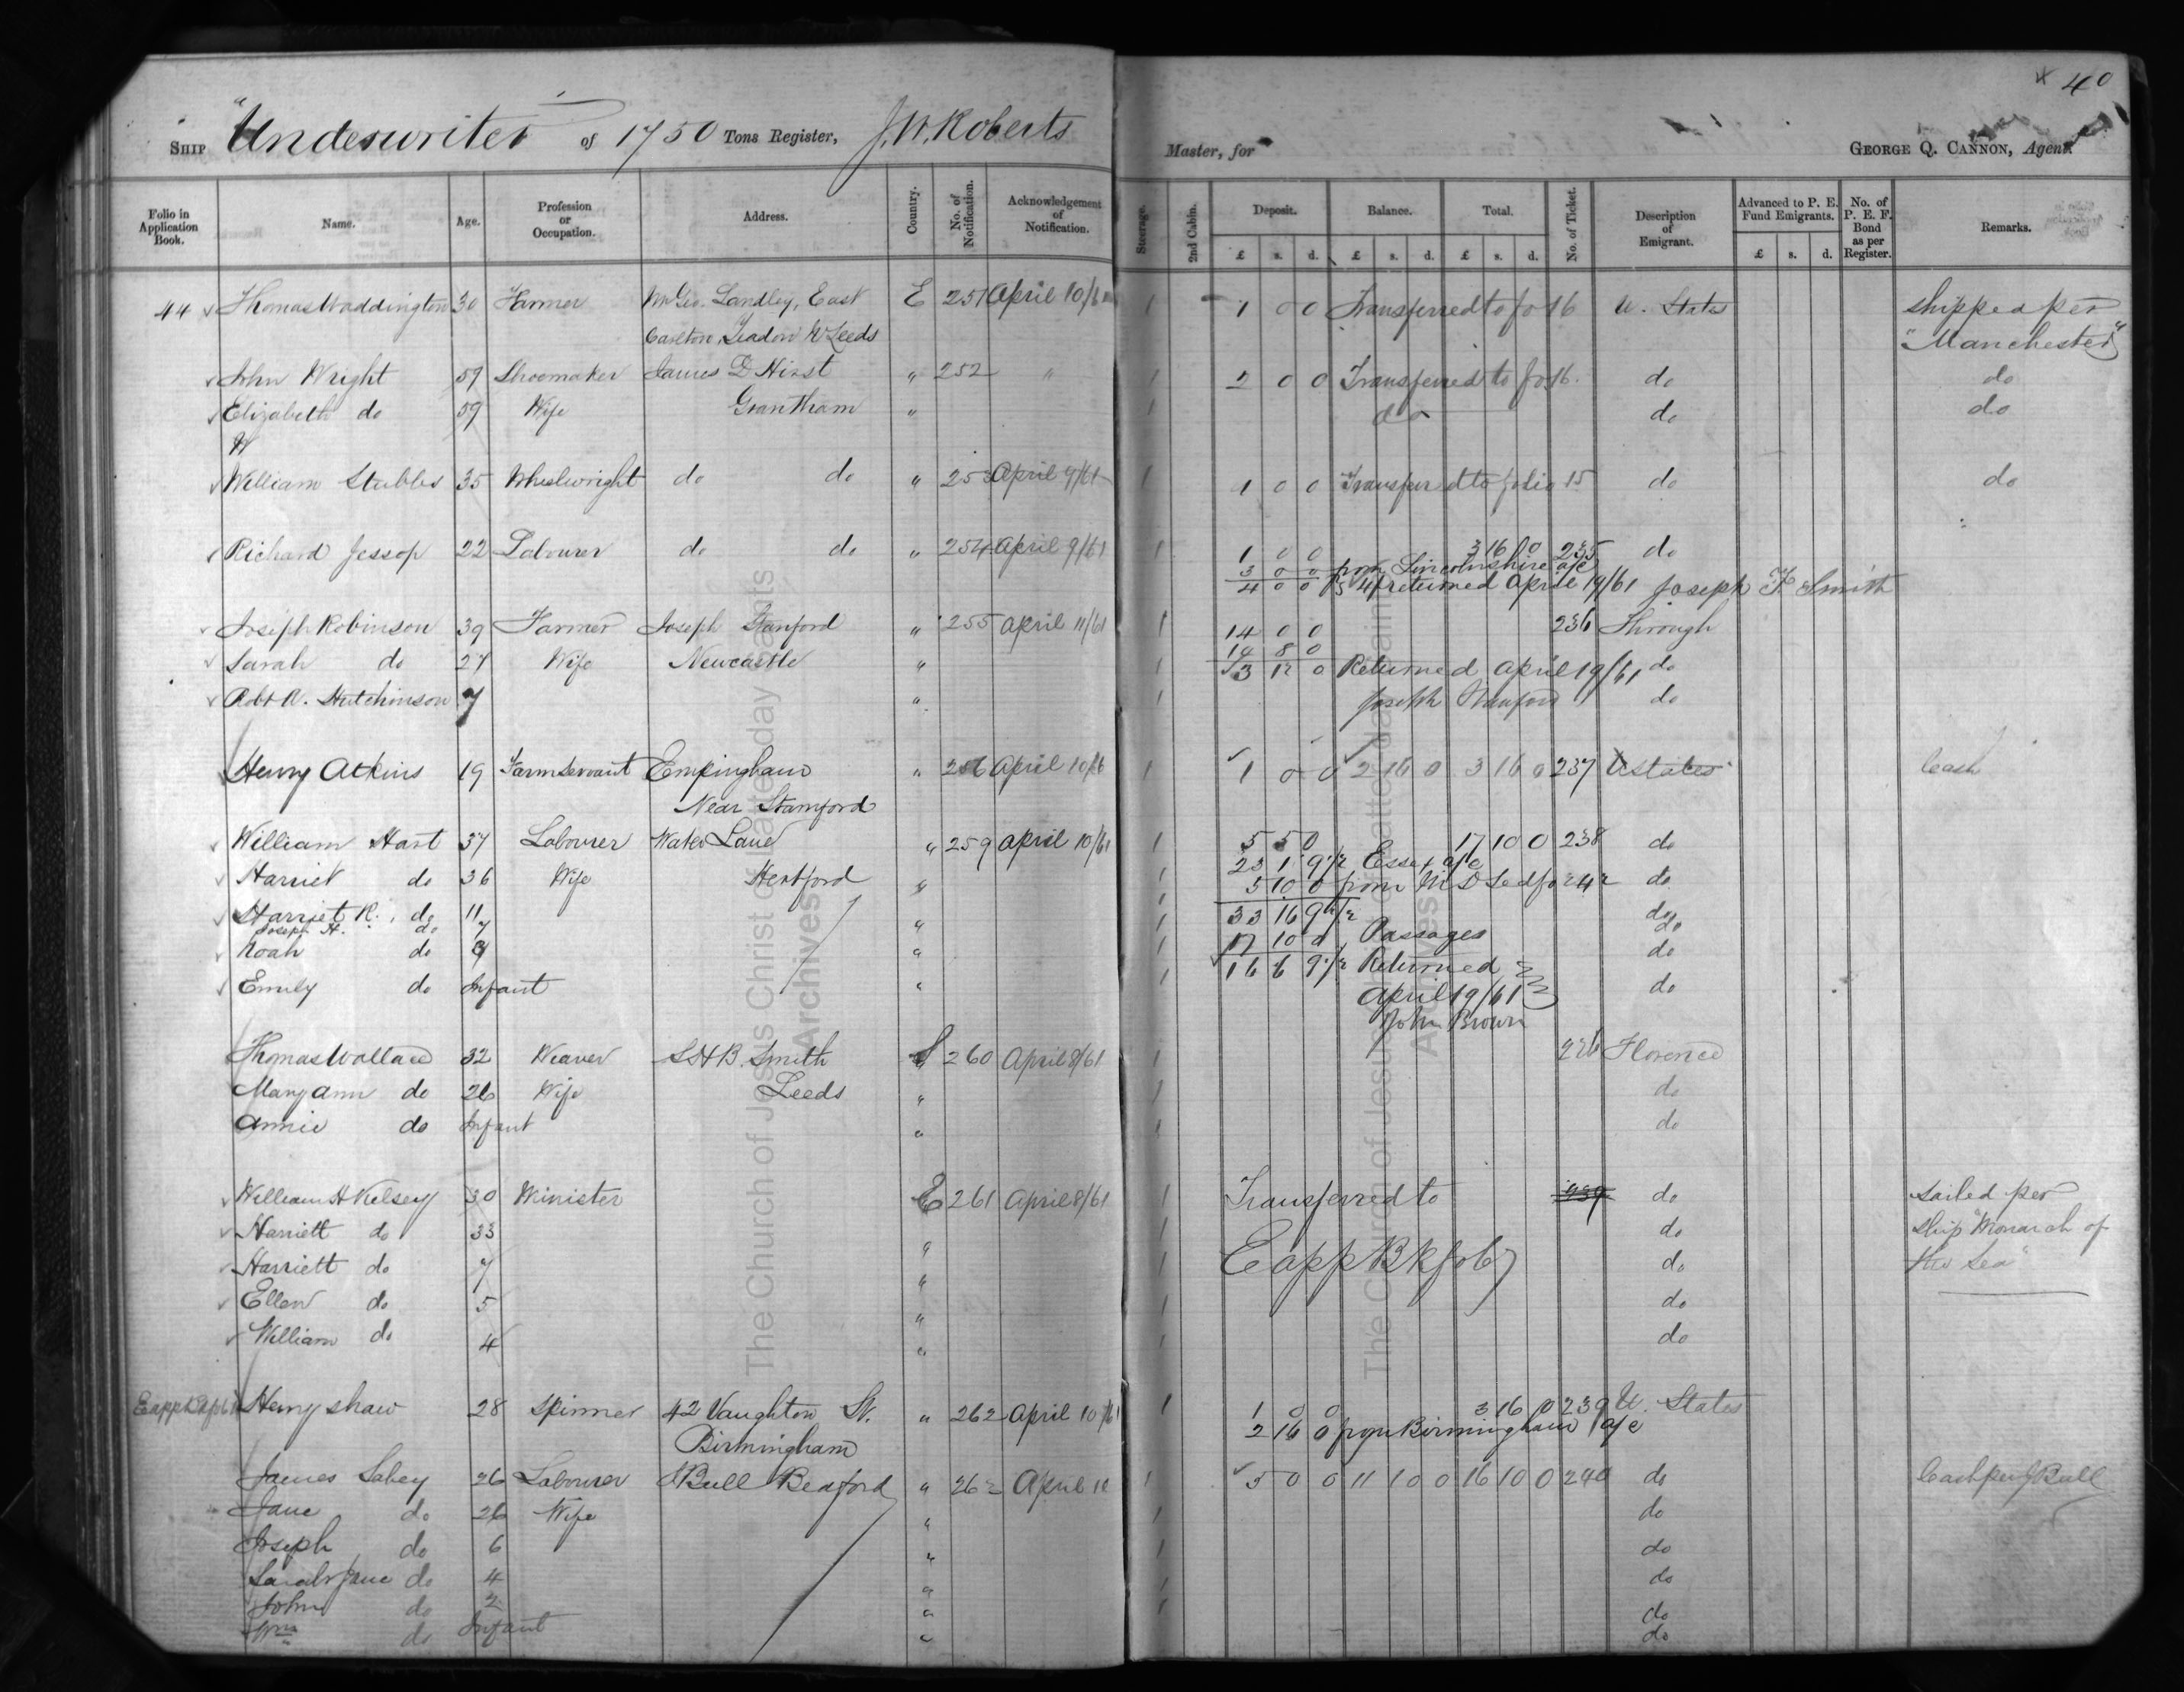 * 40
SHIP "Underwriter" of 1750 Tons Register, J. W. Roberts Master, for GEORGE Q. CANNON, Agent.
Folio in Application Book. Name. Age. Profession or Occupation. Address. Country. No. of Notification. Acknowledgement of Notification. Steerage. 2nd Cabin. Deposit. Balance. Total. No. of Ticket. Description of Emigrant. Advanced to P. E. Fund Emigrants. No. of P. E. F. Bond as per Register. Remarks.
£ s. d. £ s. d. £ s. d. £ s. d.
44 Thomas Waddington 30 Farmer Mr Geo. Landley, East E 251 April 10/61 1 1 0 0 Transferred to fo 16 U. States shipped per
Carlton, Leadon Nr Leeds "Manchester"
John Wright 59 Shoemaker James D Hirst " 252 " 1 2 0 0 Transferred to fo 16. do do
Elizabeth do 59 Wife Grantham " 1 do do do
W
William Stubbs 35 Wheelwright do do " 253 April 9/61 1 1 0 0 Transferred to folio 15 do do
Richard Jessop 22 Labourer do do " 254 April 9/61 1 1 0 0 3 16 0 235 do
3 0 0 from Lincolnshire a/c
4 0 0 returned April 19/61 Joseph F Smith
Joseph Robinson 39 Farmer Joseph Stanford " 255 April 11/61 1 14 0 0 236 Through
Sarah do 27 Wife Newcastle " 1 14 8 0
3 12 0 Returned April 19/61 do
Robt R. Hutchinson 7 " 1 Joseph Stanford do
Henry Atkins 19 Farm Servant Empingham " 256 April 10/6 1 1 0 0 2 16 0 3 16 0 237 U States Cash
Near Stamford
William Hart 37 Labourer Water Lane " 259 April 10/61 1 5 5 0 17 10 0 238 do
23 1 9 1/2 Essex a/c
Harriet do 36 Wife Hertford " 1 5 10 0 from do
Harriet R. do 11 " 1 33 16 9 1/2 do
Joseph H. do 7 do
Noah do 9 " 1 17 10 0 Passages do
16 6 9 1/2 Returned
Emily do Infant " 1 April 19/61 do
John Brown
Thomas Wallace 32 Weaver S H B. Smith S 260 April 8/61 1 226 Florence
Mary Ann do 26 Wife Leeds " 1 do
Annie do Infant " 1 do
William H Kelsey 30 Minister E 261 April 8/61 1 Transferred to 239 do sailed per
Harriett do 33 " 1 do ship "Monarch of
Harriett do 7 " 1 E app Bk fo 67 do the Sea"
Ellen do 5 " 1 do
William do 4 " 1 do
Henry Shaw 28 Spinner 42 Vaughton St. " 262 April 10/61 1 1 0 0 3 16 0 239 U. States
Birmingham 2 16 0 from Birmingham a/c
James Sabey 26 Labourer J Bull Bedford " 262 April 10 1 5 0 0 11 10 0 16 10 0 240 do Cash per J Bull
Jane do 26 Wife " 1 do
Joseph do 6 " 1 do
Sarah Jane do 4 " 1 do
John do 2 " 1 do
Wm do Infant " do
The Church of Jesus Christ of Latter-day Saints
Archives
The Church of Jesus Christ of Latter-day Saints
Archives